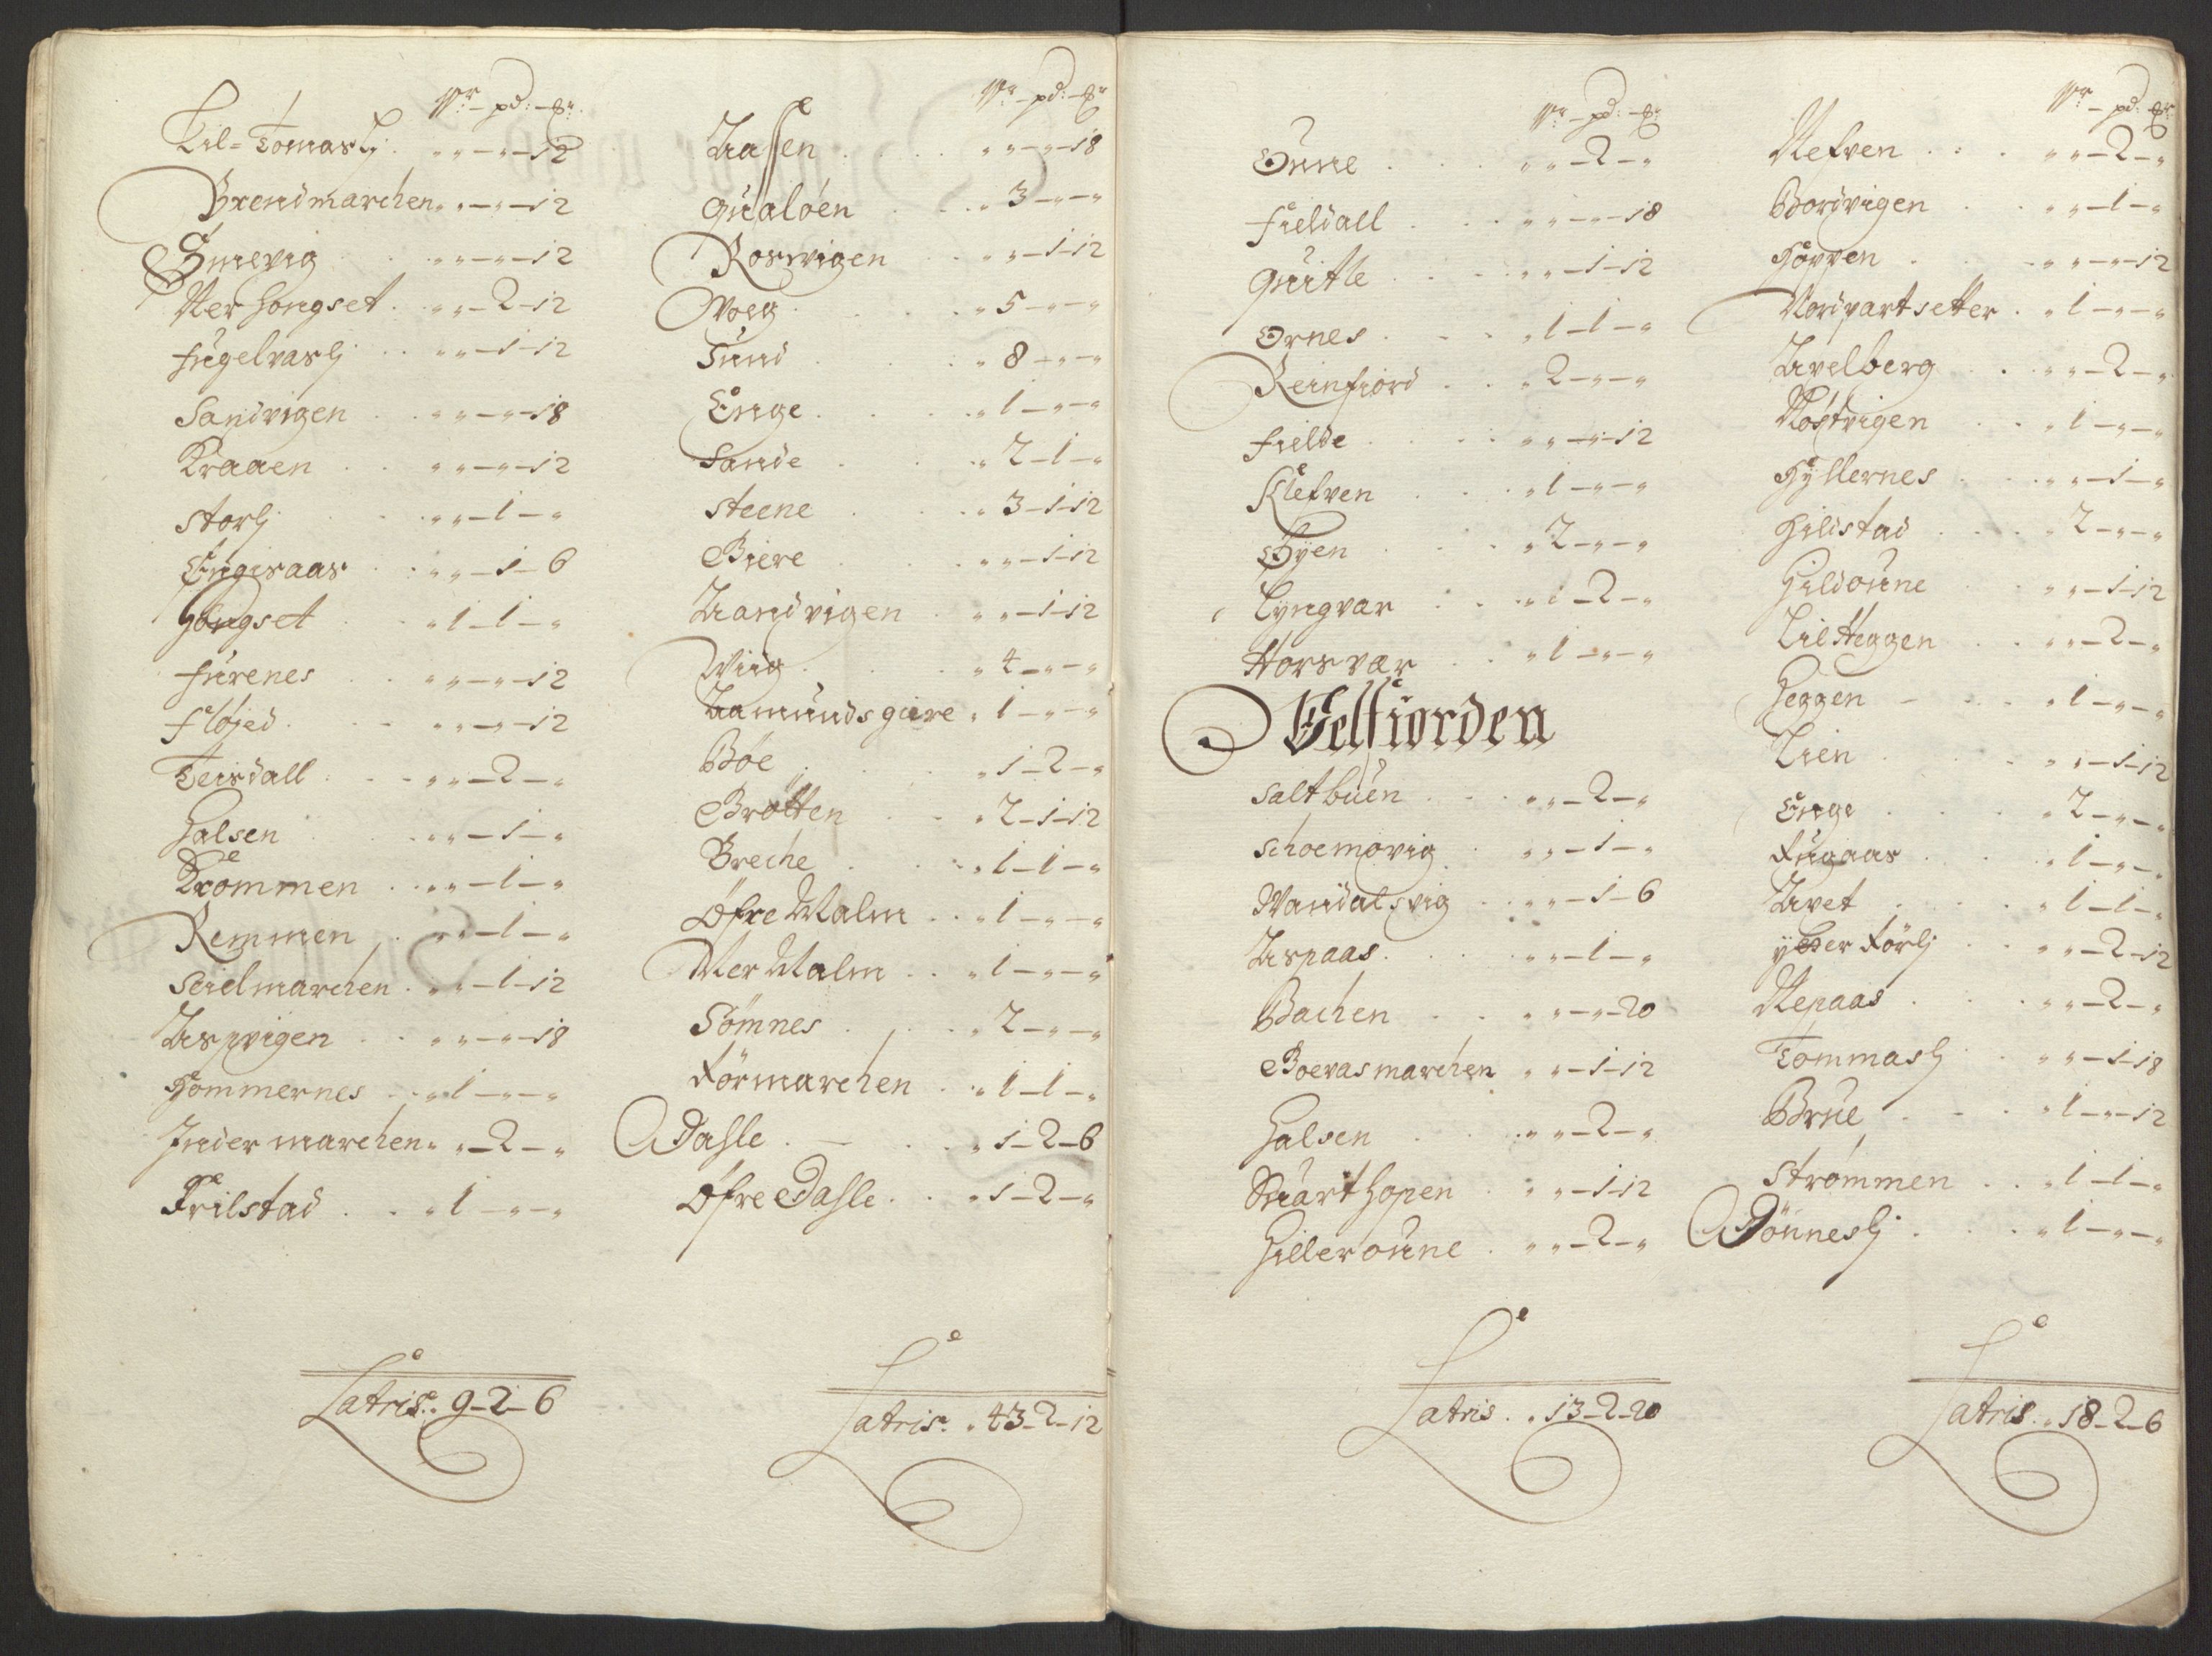 Wr - pd: - Er
Lil=Tomaslj . „ „ - „ - 12
Brendmarchen „ „ - „ - 12
Smevig „ „ - „ - 12
Ner Hongset . „ „ - 2 - 12
Fugelvaslj . . „ „ - 1 - 12
Sandvigen . . „ „ - „ - 18
Kraaen . . „ „ - „ - 12
Storlj . „ „ - 1 - „
Engesaas . „ „ - 1 - 6
Hongset . „ 1 - 1 - „
Furenes . „ „ - „ - 12
Fløjed . . „ „ - „ - 12
Teisdall . . „ „ - 2 - „
Halsen . „ „ - 1 - „
Krommen . „ „ - 1 - „
Remmen . „ „ - 1 - „
Schielmarchen . „ „ - 1 - 12
Aspvigen . . „ „ - „ - 18
Hommernes . . „ 1 - „ - „
Inder marchen „ „ - 2 - „
Trilstad . . „ 1 - „ - „
Latris . 9 - 2 - 6
Wr - pd: - Er
Aassen . . „ „ - „ - 18
Qualøen . . „ 3 - „ - „
Roswigen . . „ „ - 1 - 12
Woeg . . „ 5 - „ - „
Sund . . „ 8 - „ - „
Enge . . „ 1 - „ - „
Sande . . „ 2 - 1 - „
Steene . . „ 3 - 1 - 12
Biere . . „ „ - 1 - 12
Aandvigen . „ „ - 1 - 12
Wiig . . „ 4 - „ - „
Aamundsgiere . „ 1 - „ - „
Bøe . . „ 1 - 2 - „
Bråtten . . „ 2 - 1 - 12
Breche . . „ 1 - 1 - „
Øfre Malm . . „ 1 - „ - „
Ner Malm . . „ 1 - „ - „
Sömnes . . „ 2 - „ - „
Förmarchen . „ 1 - 1 - „
Dahle . - . . „ 1 - 2 - 6
Øfre Dahle . . „ 1 - 2 - „
Latris . „ 43 - 2 - 12
Wr - pd: - Er
Oune . . „ „ - 2 - „
Fieldall . . „ „ - „ - 18
Quitle . . „ „ - 1 - 12
Ornes . . „ 1 - 1 - „
Reinfiord . . „ 2 - „ - „
Fielde . . „ „ - „ - 12
Klefven . . „ 1 - „ - „
Öyen . . „ 2 - „ - „
Lyngvar . . „ „ - 2 - „
Horsvær . . „ 1 - „ - „
Velfiorden
Saltbuen . . „ „ - 2 - „
Schoemovig . „ „ - 1 - „
Wandalsvig . . „ „ - 1 - 6
Aspaas . . „ „ - 1 - „
Bachen . . „ „ - „ - 20
Boevasmarchen „ „ - 1 - 12
Halsen . . „ „ - 2 - „
Suarthopen . „ „ - 1 - 12
Hilleroune . „ „ - 2 - „
Latris . „ 13 - 2 - 20
Wr - pd: - Er
Nefven . . „ „ - 2 - „
Bordvigen . „ „ - 1 - „
Hoppen . . „ „ - „ - 12
Nordvartsetter . „ 1 - „ - „
Avelberg . . „ „ - 2 - „
Nøstvigen . . „ 1 - „ - „
Hyllernes . . „ „ - 1 - „
Hildstad . . „ 2 - „ - „
Hildoune . . „ „ - 1 - 12
Lil Heggen . . „ „ - 2 - „
Heggen - . . „ 1 - „ - „
Lien . . „ „ - 1 - 12
Enge . . „ 2 - „ - „
Fugaas . . „ 1 - „ - „
Avet . . „ 1 - 1 - „
ytter Förlj . . „ „ - 2 - 12
Nepaas . . „ „ - 2 - „
Tommaslj . . „ „ - 1 - 18
Brue . . „ 1 - „ - 12
Strømmen . . „ 1 - 1 - „
Dönneslj . . „ 1 - „ - „
Latris . „ 18 - 2 - 6